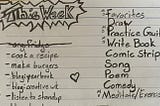 This Week
cook a recipe
make burgers
listen to standup
Favorites
Draw
Practice Guit
Write Book
Comic Strip
Song
Poem
Comedy
Meditate/Exercis